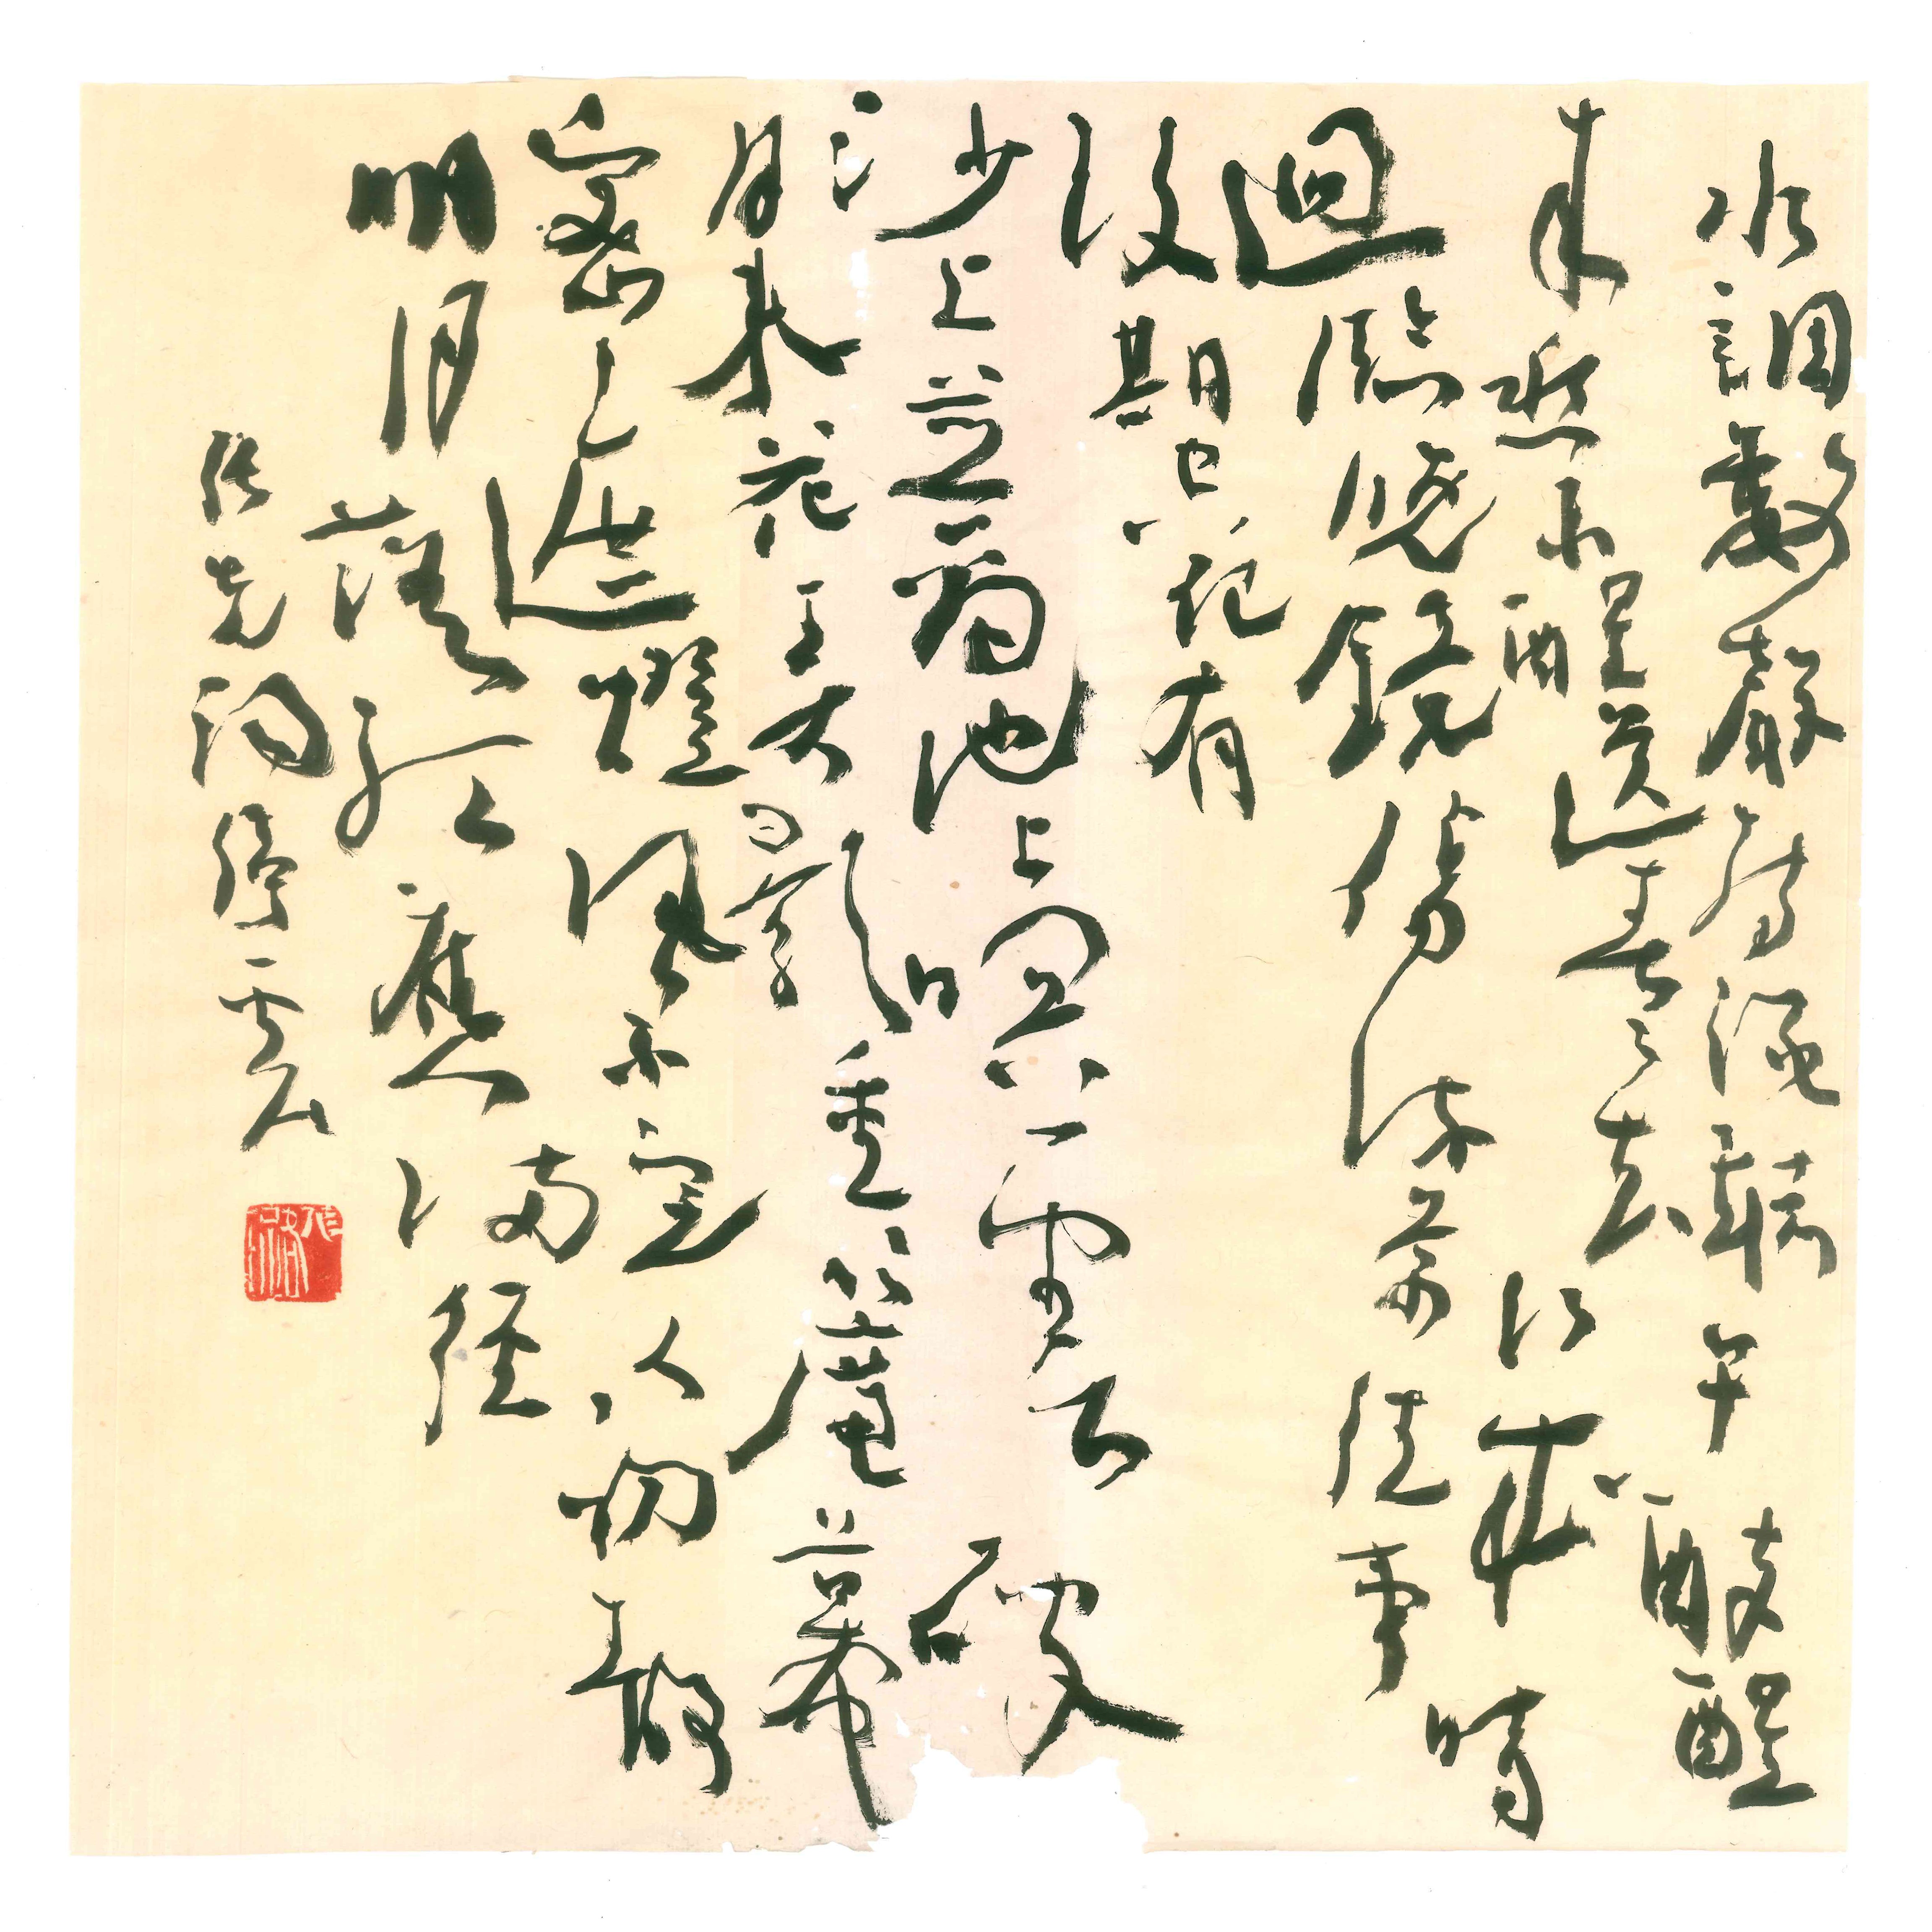 水調數聲持酒聽午醉醒
來愁不醒送春〻去時
迴臨晚鏡傷流景往事
後期記
沙上並禽池上暝雲破
月來花弄影重〻簾幕
密〻遮燈風不定人初靜
明月落紅應滿徑
張先詞停雲